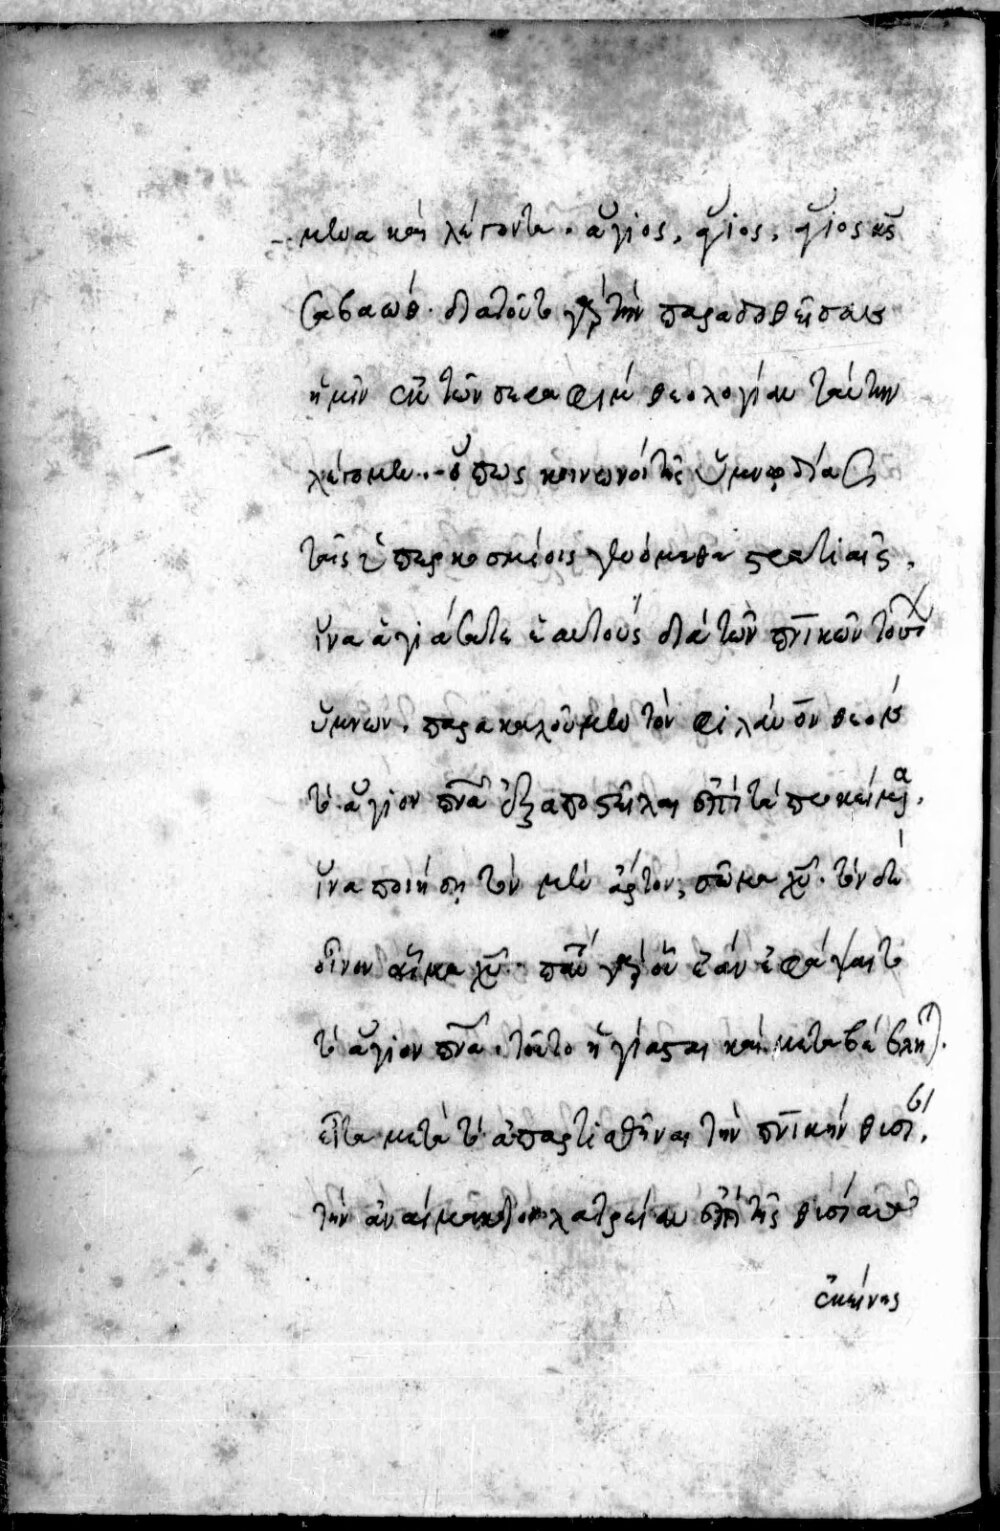 μενα καὶ λέγοντα. ἅγιος, ἅγιος, ἅγιος κς
σαβαώθ. διατοῦτο γὰρ τὴν παραδοθεῖσαν
ἡμῖν ἐκ τῶν σεραφὶμ θεολογίαν ταύτην
λέγομεν. ὅπως κοινωνοὶ τῆς ὑμνῳδίας
ταῖς ὑπερκοσμίοις γενόμεθα στρατιαῖς.
ἵνα ἁγιάσαντες ἑαυτοὺς διὰ τῶν πνικῶν τούτων
ὕμνων. παρακαλοῦμεν τὸν φιλάνον θεὸν
τὸ ἅγιον πνα ἐξαποστεῖλαι ἐπὶ τὰ προκείμενα.
ἵνα ποιήσῃ τὸν μὲν ἄρτον, σῶμα χυ. τὸν δὲ
οἶνον αἷμα χυ. παν γὰρ οὗ ἐὰν ἐφάψαιτο
τὸ ἅγιον πνα. τοῦτο ἡγίασται καὶ μεταβέβληται.
εἶτα μετὰ τὸ ἀπαρτισθῆναι τὴν πνικὴν θυσίαν,
τὴν ἀναίμακτον λατρείαν ἐπὶ τῆς θυσίας
ἐκείνης